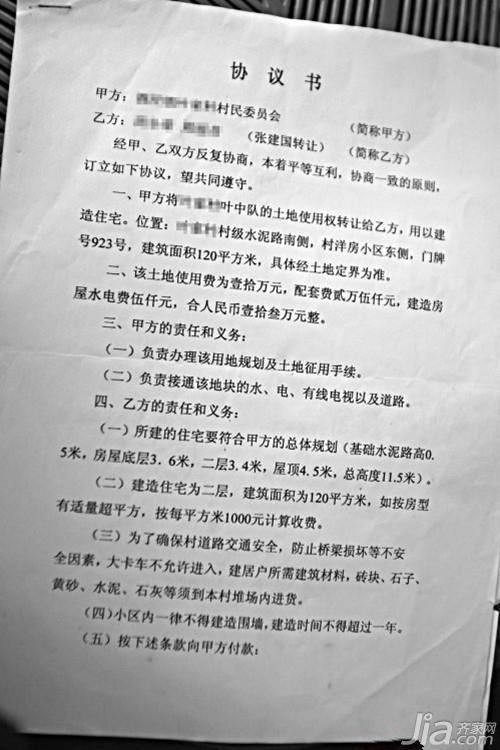 协 议 书
甲方：村民委员会 （简称甲方）
乙方： （张建国转让） （简称乙方）
经甲、乙双方反复协商，本着平等互利，协商一致的原则，
订立如下协议，望共同遵守。
一、甲方将叶中队的土地使用权转让给乙方，用以建
造住宅。位置：村级水泥路南侧，村洋房小区东侧，门牌
号923号，建筑面积120平方米，具体经土地定界为准。
二、该土地使用费为壹拾万元，配套费贰万伍仟元，建造房
屋水电费伍仟元，合人民币壹拾叁万元整。
三、甲方的责任和义务：
（一）负责办理该用地规划及土地征用手续。
（二）负责接通该地块的水、电、有线电视以及道路。
四、乙方的责任和义务：
（一）所建的住宅要符合甲方的总体规划（基础水泥路高0.
5米，房屋底层3.6米，二层3.4米，屋顶4.5米，总高度11.5米）。
（二）建造住宅为二层，建筑面积为120平方米，如按房型
有适量超平方，按每平方米1000元计算收费。
（三）为了确保村道路交通安全，防止桥梁损坏等不安
全因素，大卡车不允许进入，建居户所需建筑材料，砖块、石子、
黄砂、水泥、石灰等须到本村堆场内进货。
（四）小区内一律不得建造围墙，建造时间不得超过一年。
（五）按下述条款向甲方付款：
Jia.com 齐家网